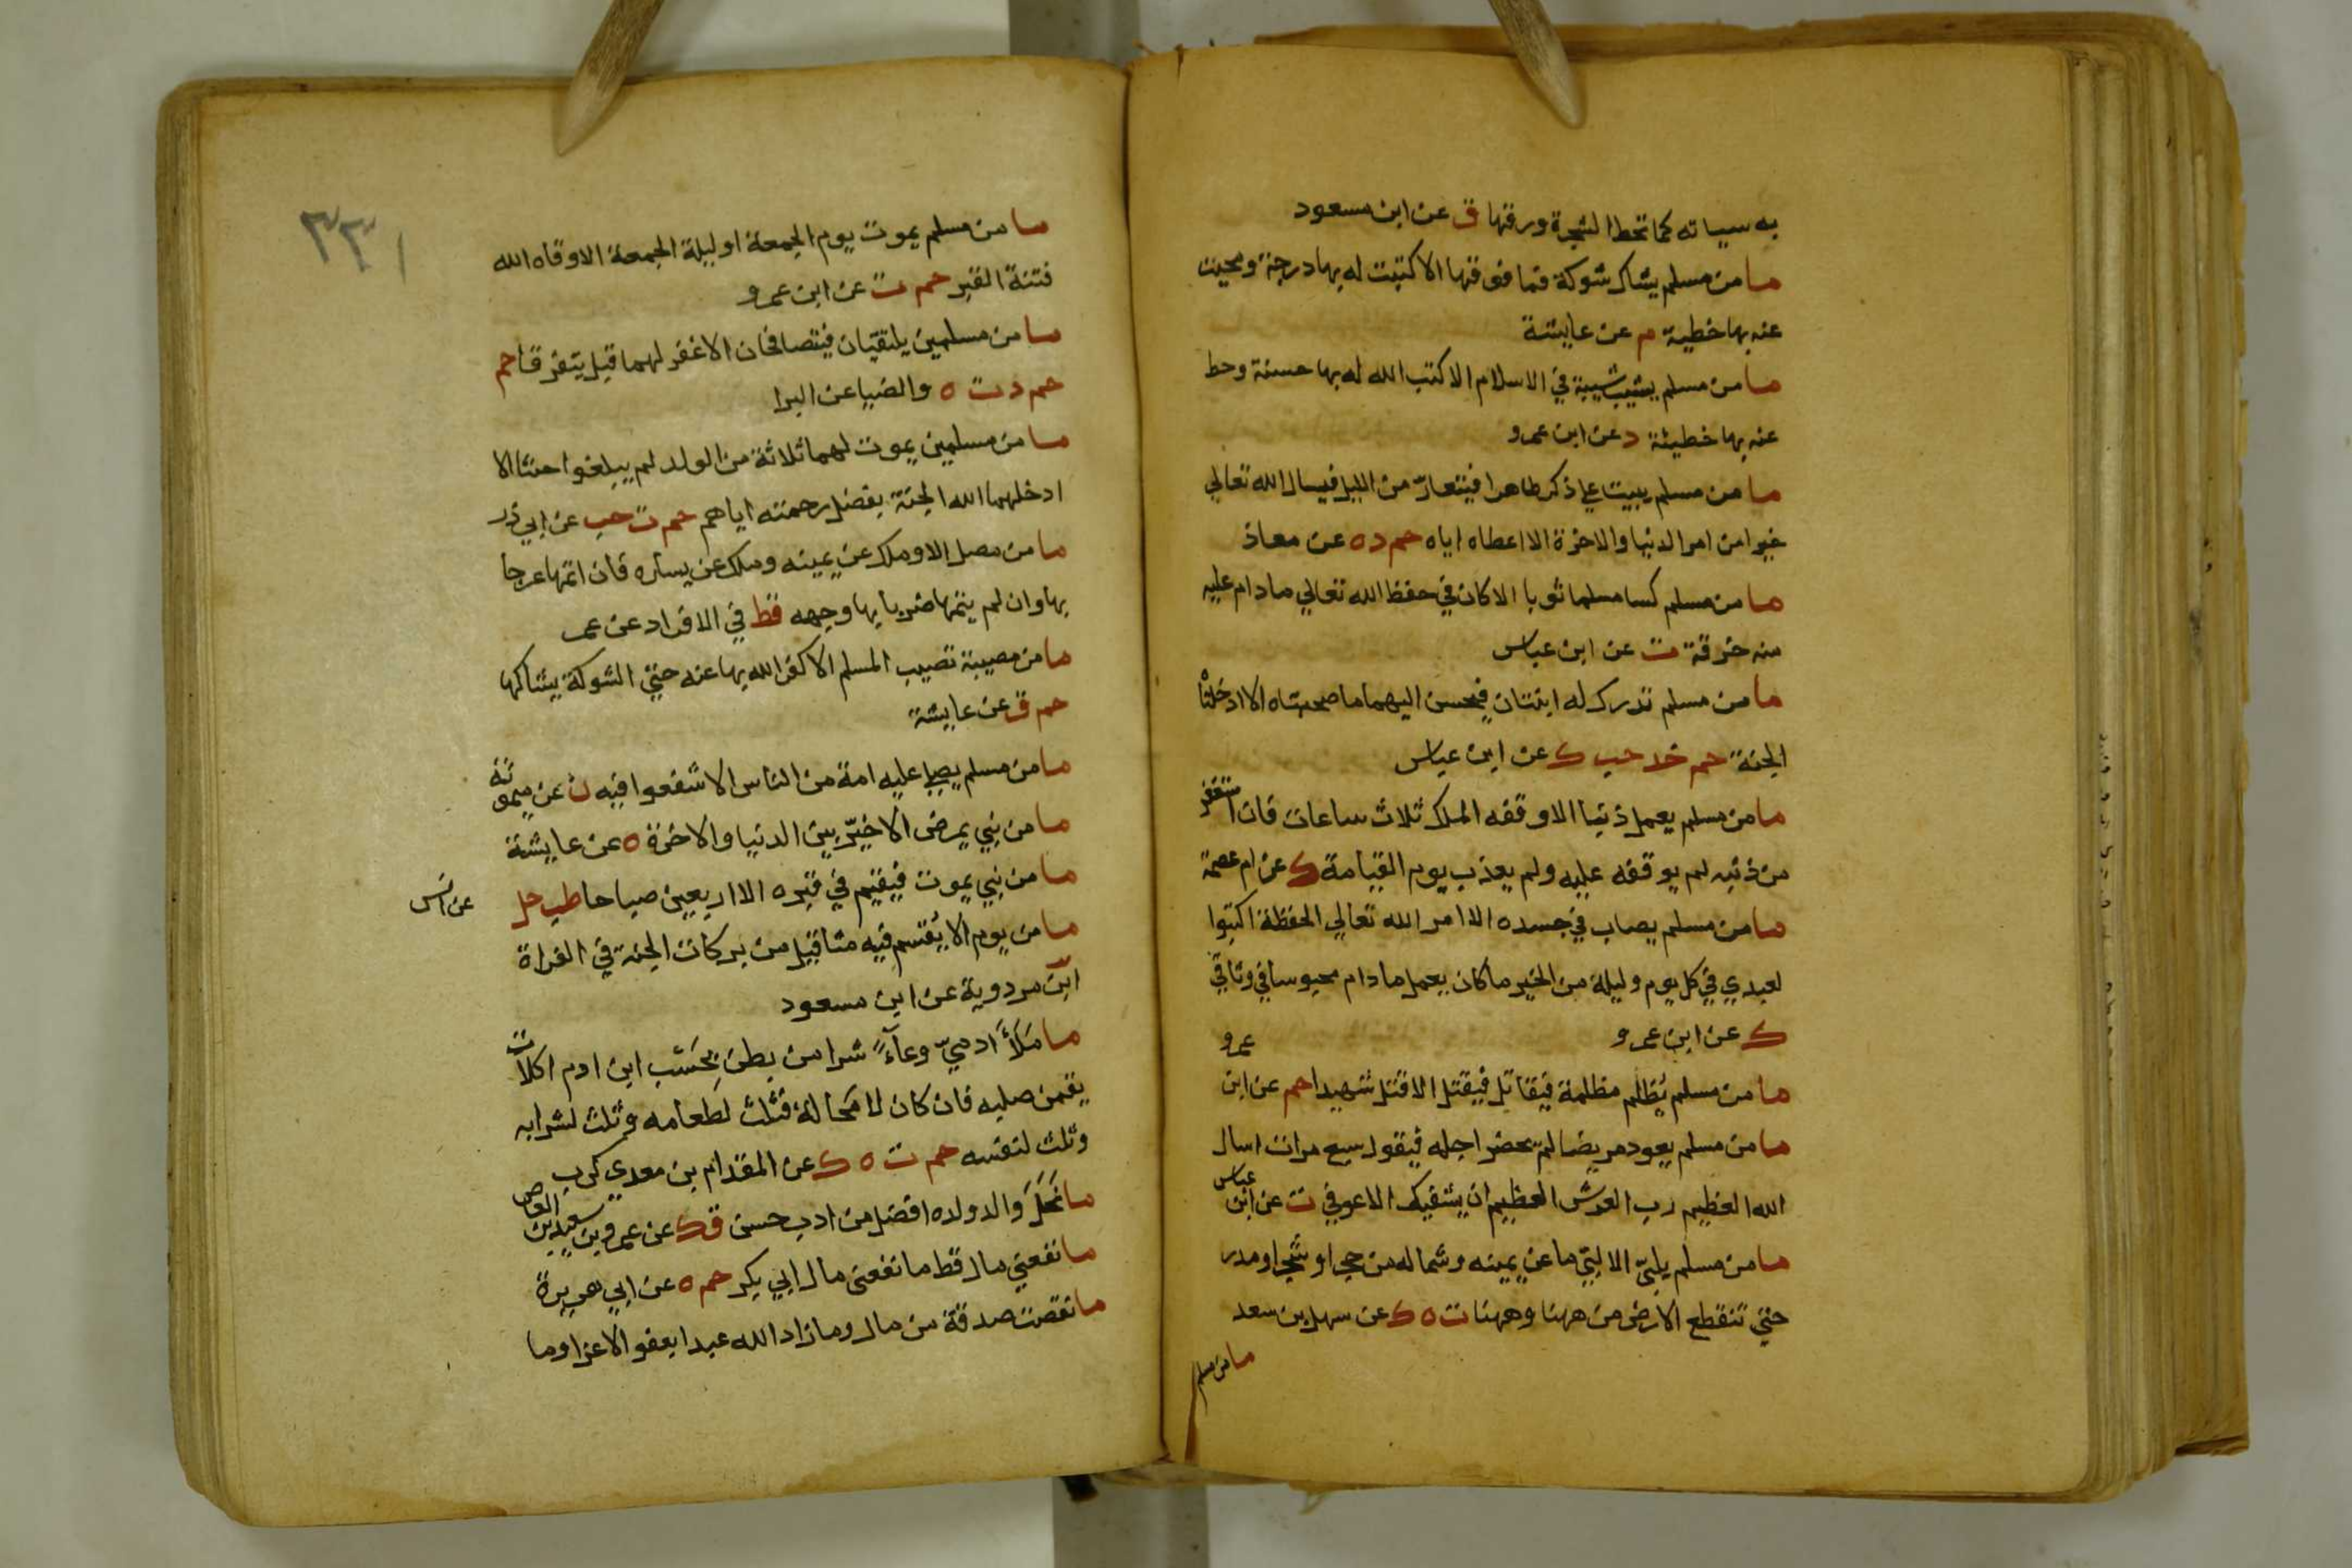 به سياته كما تحط الشجرة ورقها ق عن ابن مسعود
ما من مسلم يشاك شوكة فما فوقها الا كتبت له بها درجة ومحيت
عنه بها خطية م عن عايشة
ما من مسلم يشيب شيبة في الاسلام الا كتب الله له بها حسنة وحط
عنه بها خطيئة د عن ابن عمرو
ما من مسلم يبيت علي ذكر طاهرا فيتعارّ من الليل فيسال الله تعالي
خيرا من امر الدنيا والاخرة الا اعطاه اياه حم د ه عن معاذ
ما من مسلم كسا مسلما ثوبا الا كان في حفظ الله تعالي ما دام عليه
منه خرقة ت عن ابن عباس
ما من مسلم تدرك له ابنتان فيحسن اليهما ما صحبتاه الا ادخلتا
الجنة حم خد حب ك عن ابن عباس
ما من مسلم يعمل ذنبا الا وقفه الملك ثلاث ساعات فان استغفر
من ذنبه لم يوقفه عليه ولم يعذب يوم القيامة ك عن ام عصمة
ما من مسلم يصاب في جسده الا امر الله تعالي الحفظة اكتبوا
لعبدي في كل يوم وليلة من الخير ما كان يعمل ما دام محبوسا في وثاقي
ك عن ابن عمرو
ما من مسلم يُظلم مظلمة فيقاتل فيقتل الا قتل شهيدا حم عن ابن عمرو
ما من مسلم يعود مريضا لم يحضر اجله فيقول سبع مرات اسال
الله العظيم رب العرش العظيم ان يشفيك الا عوفي ت عن ابن عباس
ما من مسلم يلبّي الا لبّي ما عن يمينه وشماله من حجر او شجر او مدر
حتي تنقطع الارض من ههنا وههنا ت ه ك عن سهل بن سعد
ما من مسلم
٣٣١
ما من مسلم يموت يوم الجمعة او ليلة الجمعة الا وقاه الله
فتنة القبر حم ت عن ابن عمرو
ما من مسلمين يلتقيان فيتصافحان الا غفر لهما قبل يتفرقا حم
حم د ت ه والضيا عن البرا
ما من مسلمين يموت لهما ثلاثة من الولد لم يبلغوا حنثا الا
ادخلهما الله الجنة بفضل رحمته اياهم حم ت حب عن ابي ذر
ما من مصل الا وملك عن يمينه وملك عن يساره فان اتمها عرجا
بها وان لم يتمها ضربا بها وجهه قط في الافراد عن عمر
ما من مصيبة تصيب المسلم الا كفر الله بها عنه حتي الشوكة يشاكها
حم ق عن عايشة
ما من مسلم يصلي عليه امة من الناس الا شفعوا فيه ن عن ميمونة
ما من نبي يمرض الا خيّر بين الدنيا والاخرة ه عن عايشة
ما من نبي يموت فيقيم في قبره الا اربعين صباحا طب حل عن انس
ما من يوم الا يُقسم فيه مثاقيل من بركات الجنة في الفراة
ابن مردوية عن ابن مسعود
ما مَلَأَ ادميّ وعآءً شرا من بطن بِحَسْب ابن ادم اكلات
يقمن صلبه فان كان لا مَحالة فثلث لطعامه وثلث لشرابه
وثلث لنفسه حم ت ه ك عن المقدام بن معدي كرب
ما نَحَلَ والد ولده افضل من ادب حسن ق ك عن عمرو بن سعيد بن العاص
ما نفعني مال قط ما نفعني مال ابي بكر حم ه عن ابي هريرة
ما نقصت صدقة من مال وما زاد الله عبدا بعفو الا عزا وما